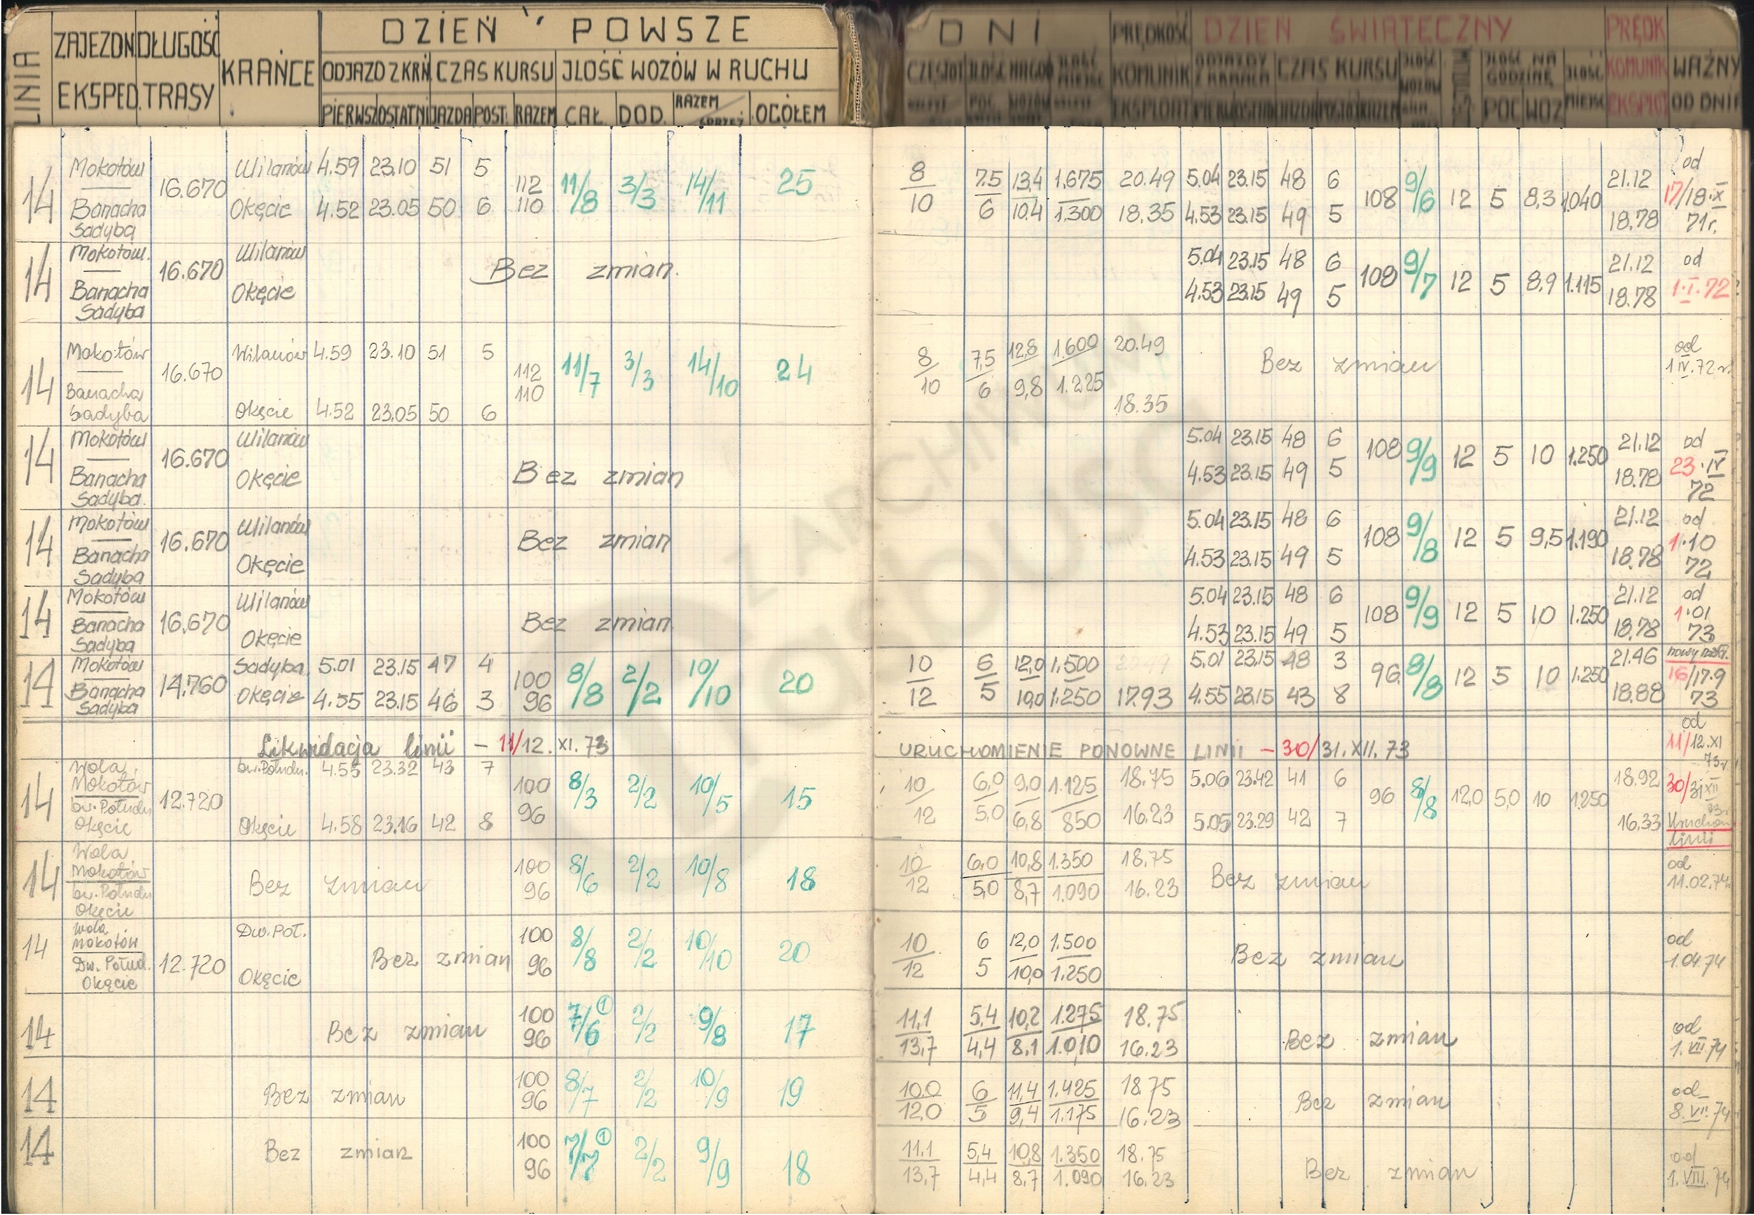 LINIA ZAJEZDN. EKSPED. DŁUGOŚĆ TRASY KRAŃCE DZIEŃ POWSZE DNI
ODJAZD Z KRŃ. CZAS KURSU ILOŚĆ WOZÓW W RUCHU
PIERWSZ OSTATNI JAZDA POST. RAZEM CAŁ. DOD. RAZEM SPRZĘŻ OGÓŁEM
PRĘDKOŚĆ KOMUNIK EKSPLOAT DZIEŃ ŚWIĄTECZNY
CZAS KURSU ILOŚĆ NA GODZINĘ POC WOZ PRĘDK KOMUNIK EKSPLOT WAŻNY OD DNIA
14 Mokotów Banacha Sadyba 16.670 Wilanów 4.59 23.10 51 5
Okęcie 4.52 23.05 50 6 112 110 11/8 3/3 14/11 25
8/10 7.5/6 13,4/10,4 1.675/1.300 20.49 18.35 5.04 23.15 48 6
4.53 23.15 49 5 108 9/6 12 5 8,3 1.040 21.12 18.78 od 17/18.X 71r.
14 Mokotów. Banacha Sadyba 16.670 Wilanów Okęcie Bez zmian.
5.04 23.15 48 6
4.53 23.15 49 5 108 9/7 12 5 8,9 1.115 21.12 18.78 od 1.I.72
14 Mokotów Banacha Sadyba 16.670 Wilanów 4.59 23.10 51 5
Okęcie 4.52 23.05 50 6 112 110 11/7 3/3 14/10 24
8/10 7,5/6 12,8/9,8 1.600/1.225 20.49 18.35 Bez zmian od 1.IV.72 r.
14 Mokotów Banacha Sadyba. 16.670 Wilanów Okęcie Bez zmian
5.04 23.15 48 6
4.53 23.15 49 5 108 9/9 12 5 10 1.250 21.12 18.78 od 23.IV 72
14 Mokotów Banacha Sadyba 16.670 Wilanów Okęcie Bez zmian
5.04 23.15 48 6
4.53 23.15 49 5 108 9/8 12 5 9,5 1.190 21.12 18.78 od 1.10 72
14 Mokotów Banacha Sadyba 16.670 Wilanów Okęcie Bez zmian
5.04 23.15 48 6
4.53 23.15 49 5 108 9/9 12 5 10 1.250 21.12 18.78 od 1.01 73
14 Mokotów Banacha Sadyba 14.760 Sadyba 5.01 23.15 47 4
Okęcie 4.55 23.15 46 3 100 96 8/8 2/2 10/10 20
10/12 6/5 12,0/10,0 1.500/1.250 17.93 5.01 23.15 48 3
4.55 23.15 43 8 96 8/8 12 5 10 1.250 21.46 18.88 16/17.9 73
Likwidacja linii – 11/12.XI.73
URUCHOMIENIE PONOWNE LINII – 30/31.XII.73 od 11/12.XI 73r
14 Wola Mokotów Dw. Połudn Okęcie 12.720 Dw. Połudn. 4.55 23.32 43 7
Okęcie 4.58 23.16 42 8 100 96 8/3 2/2 10/5 15
10/12 6,0/5,0 9,0/6,8 1.125/850 18.75 16.23 5.06 23.42 41 6
5.05 23.29 42 7 96 8/8 12,0 5,0 10 1.250 18.92 16.33 30/31 XII 73r Uruchom linii
14 Wola Mokotów Dw. Połudn Okęcie Bez zmian 100 96 8/6 2/2 10/8 18
10/12 6,0/5,0 10,8/8,7 1.350/1.090 18.75 16.23 Bez zmian od 11.02.74r
14 Wola Mokotów Dw. Połud. Okęcie 12.720 Dw. Poł. Okęcie Bez zmian 100 96 8/8 2/2 10/10 20
10/12 6/5 12,0/10,0 1.500/1.250 Bez zmian od 1.04.74
14 Bez zmian 100 96 7/6 ① 2/2 9/8 17
11,1/13,7 5,4/4,4 10,2/8,1 1.275/1.010 18.75 16.23 Bez zmian od 1.VII.74
14 Bez zmian 100 96 8/7 2/2 10/9 19
10.0/12.0 6/5 11,4/9,4 1.425/1.175 18.75 16.23 Bez zmian od 8.VII.74
14 Bez zmian 100 96 7/7 ① 2/2 9/9 18
11.1/13,7 5,4/4,4 10,8/8,7 1.350/1.090 18.75 16.23 Bez zmian od 1.VIII.74